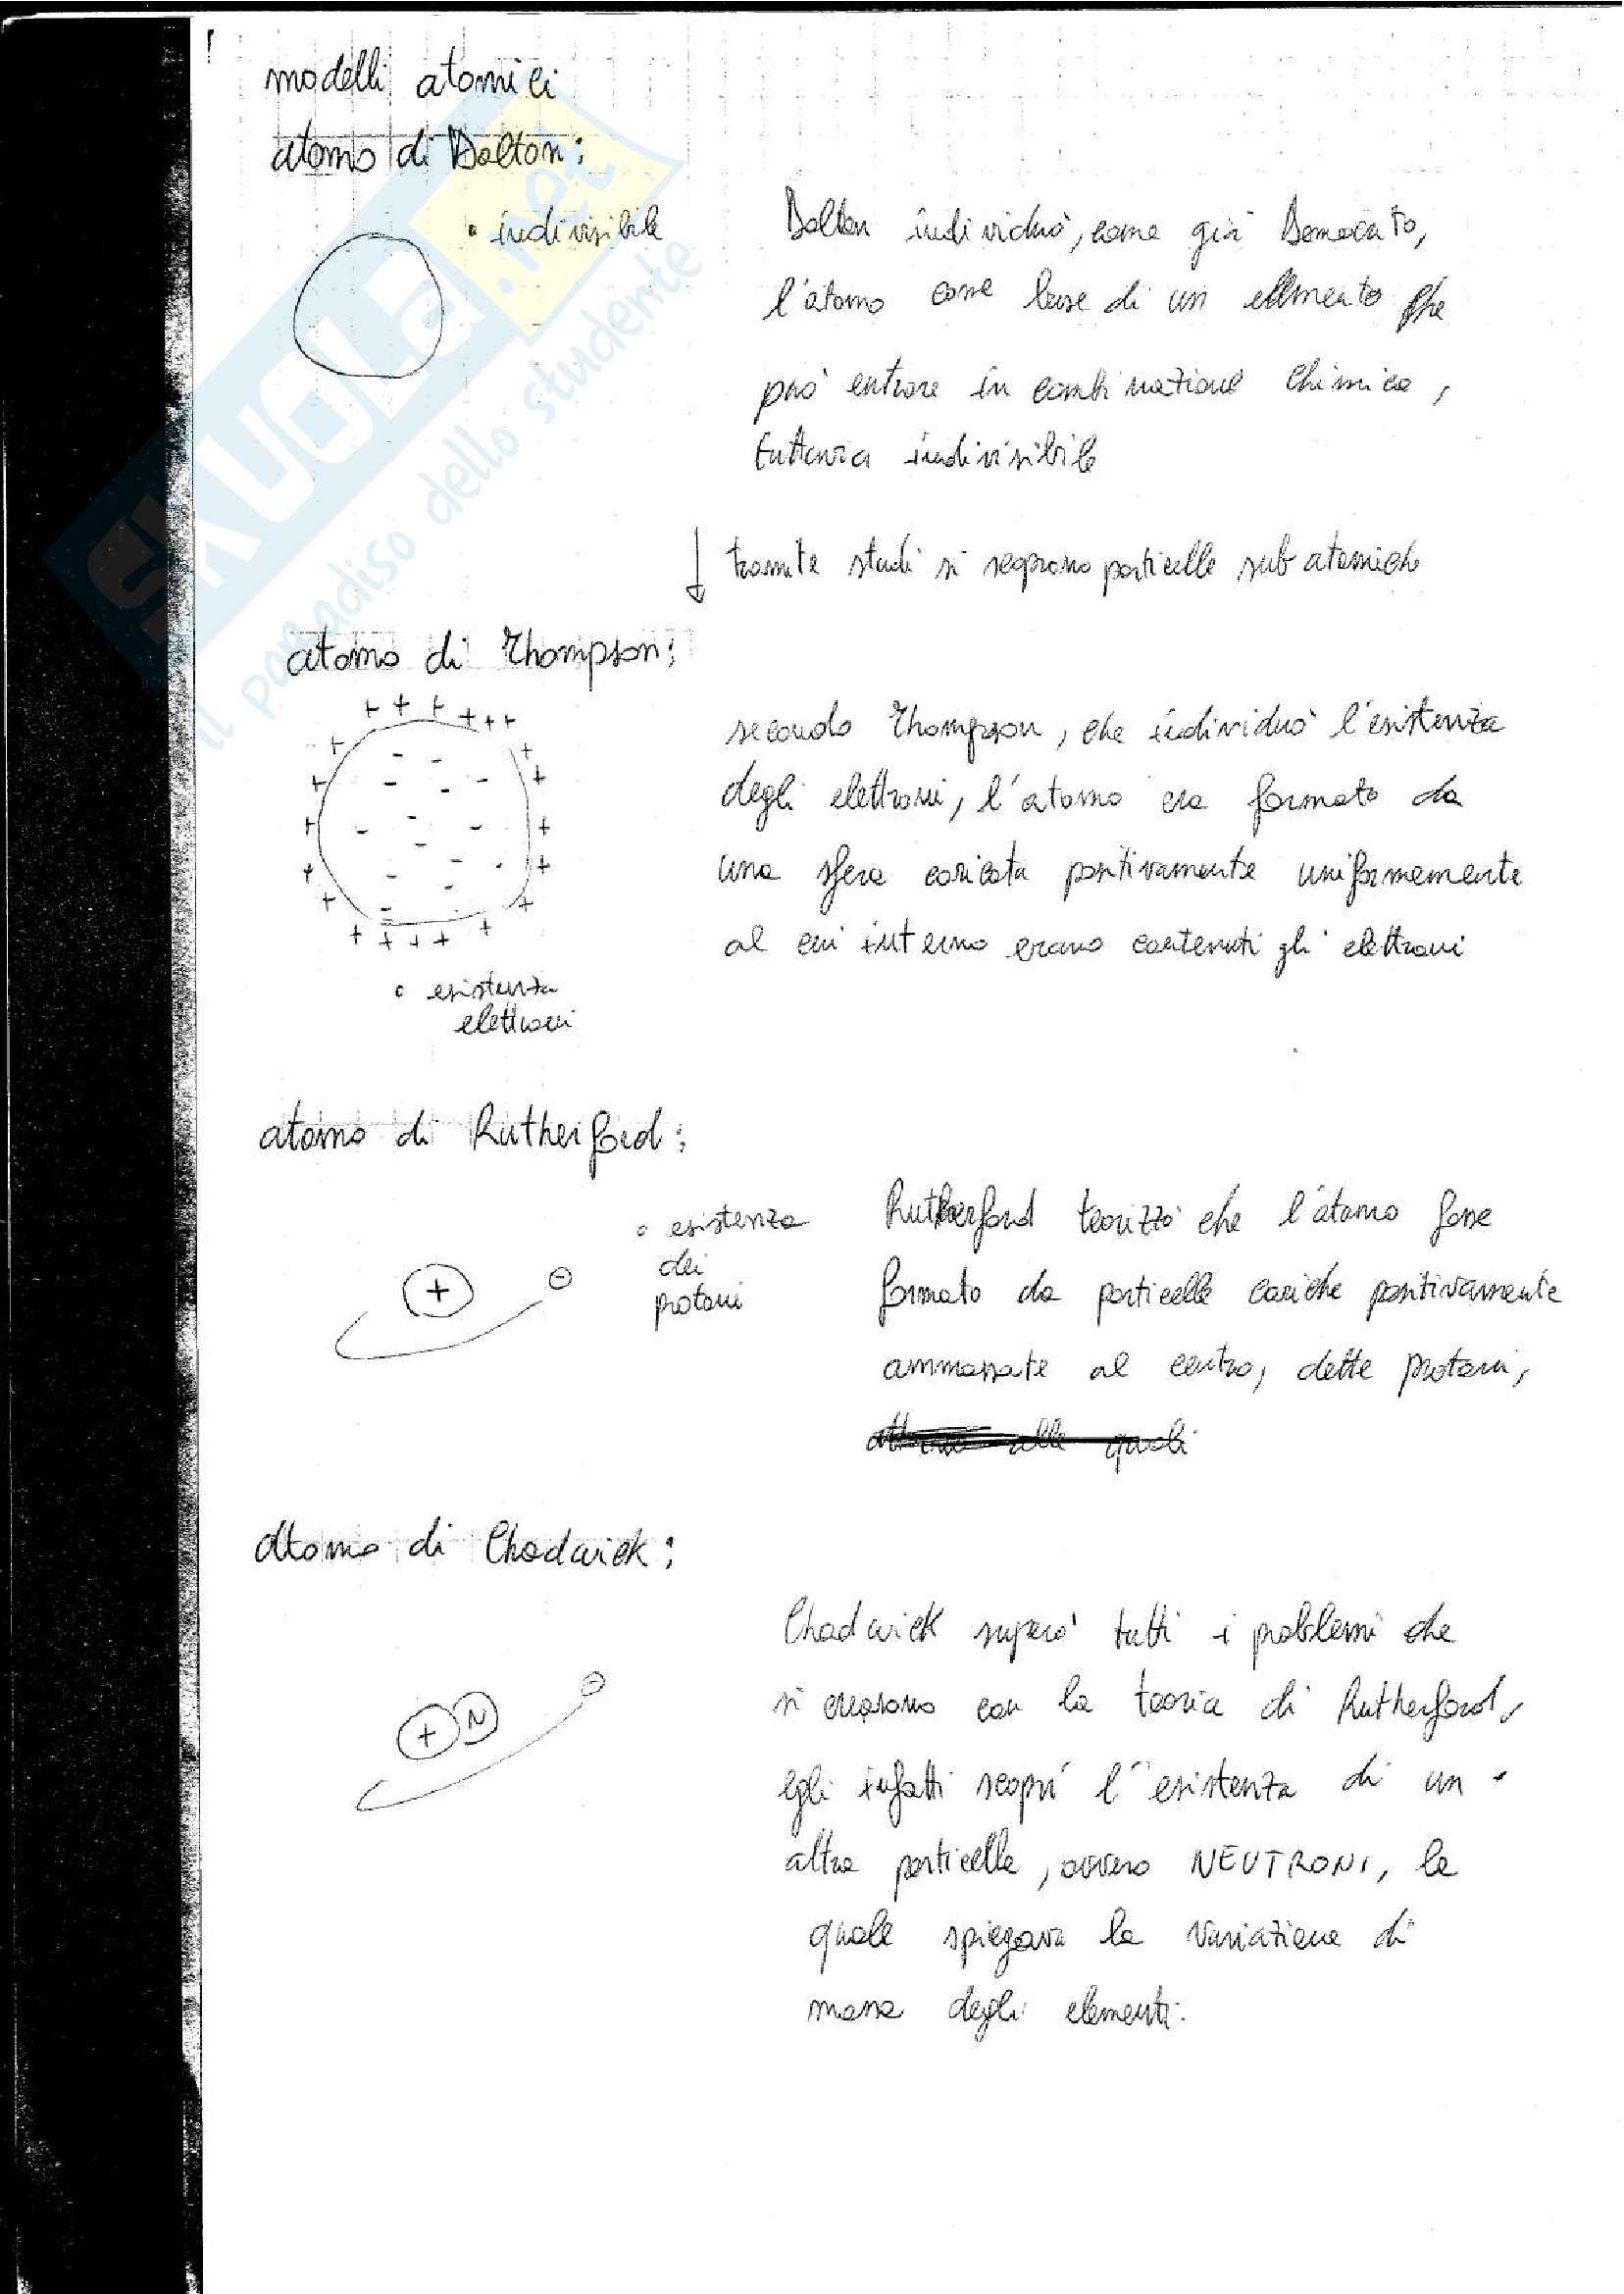 modelli atomici
atomo di Dalton:
• indivisibile
Dalton individuò, come già Democrito,
l'atomo come base di un elemento che
può entrare in combinazione chimica,
tuttavia indivisibile
↓ tramite studi si scoprono particelle sub atomiche
atomo di Thompson:
+ + + + + +
secondo Thompson, che individuò l'esistenza
degli elettroni, l'atomo era formato da
una sfera caricata positivamente uniformemente
al cui interno erano contenuti gli elettroni
• esistenza
elettroni
atomo di Rutherford:
• esistenza
dei
protoni
+ -
Rutherford teorizzò che l'atomo fosse
formato da particelle cariche positivamente
ammassate al centro, dette protoni,
alle quali
Atomo di Chadwick:
+ N -
Chadwick superò tutti i problemi che
si crearono con la teoria di Rutherford,
egli infatti scoprì l'esistenza di un
altra particella, ovvero NEUTRONI, la
quale spiegava la variazione di
massa degli elementi.
SKUOLA.net
il paradiso dello studente